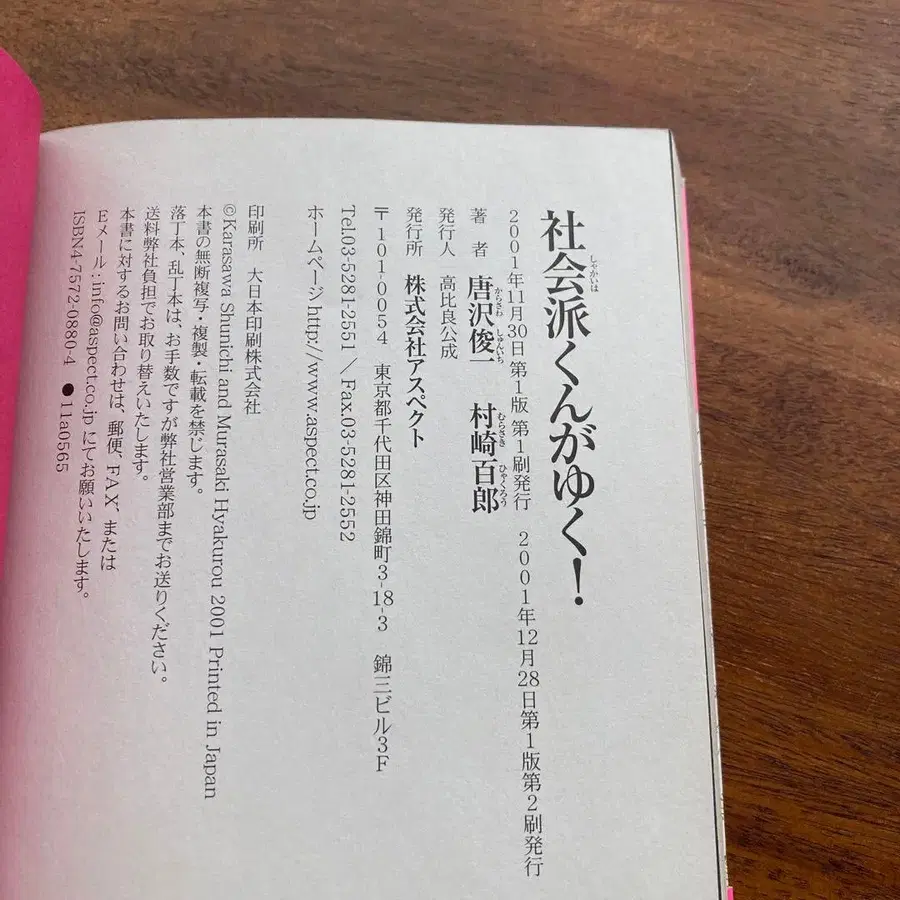 社会派くんがゆく!
しゃかいは
2001年11月30日 第1版 第1刷発行 2001年12月28日第1版第2刷発行
著 者 唐沢俊一 村崎百郎
からさわ しゅんいち むらさき ひゃくろう
発行人 高比良公成
発行所 株式会社アスペクト
〒101-0054 東京都千代田区神田錦町3-18-3 錦三ビル3F
Tel.03-5281-2551/Fax.03-5281-2552
ホームページhttp://www.aspect.co.jp
印刷所 大日本印刷株式会社
©Karasawa Shunichi and Murasaki Hyakurou 2001 Printed in Japan
本書の無断複写・複製・転載を禁じます。
落丁本、乱丁本は、お手数ですが弊社営業部までお送りください。
送料弊社負担でお取り替えいたします。
本書に対するお問い合わせは、郵便、FAX、または
Eメール:info@aspect.co.jpにてお願いいたします。
ISBN4-7572-0880-4 ●11a0565